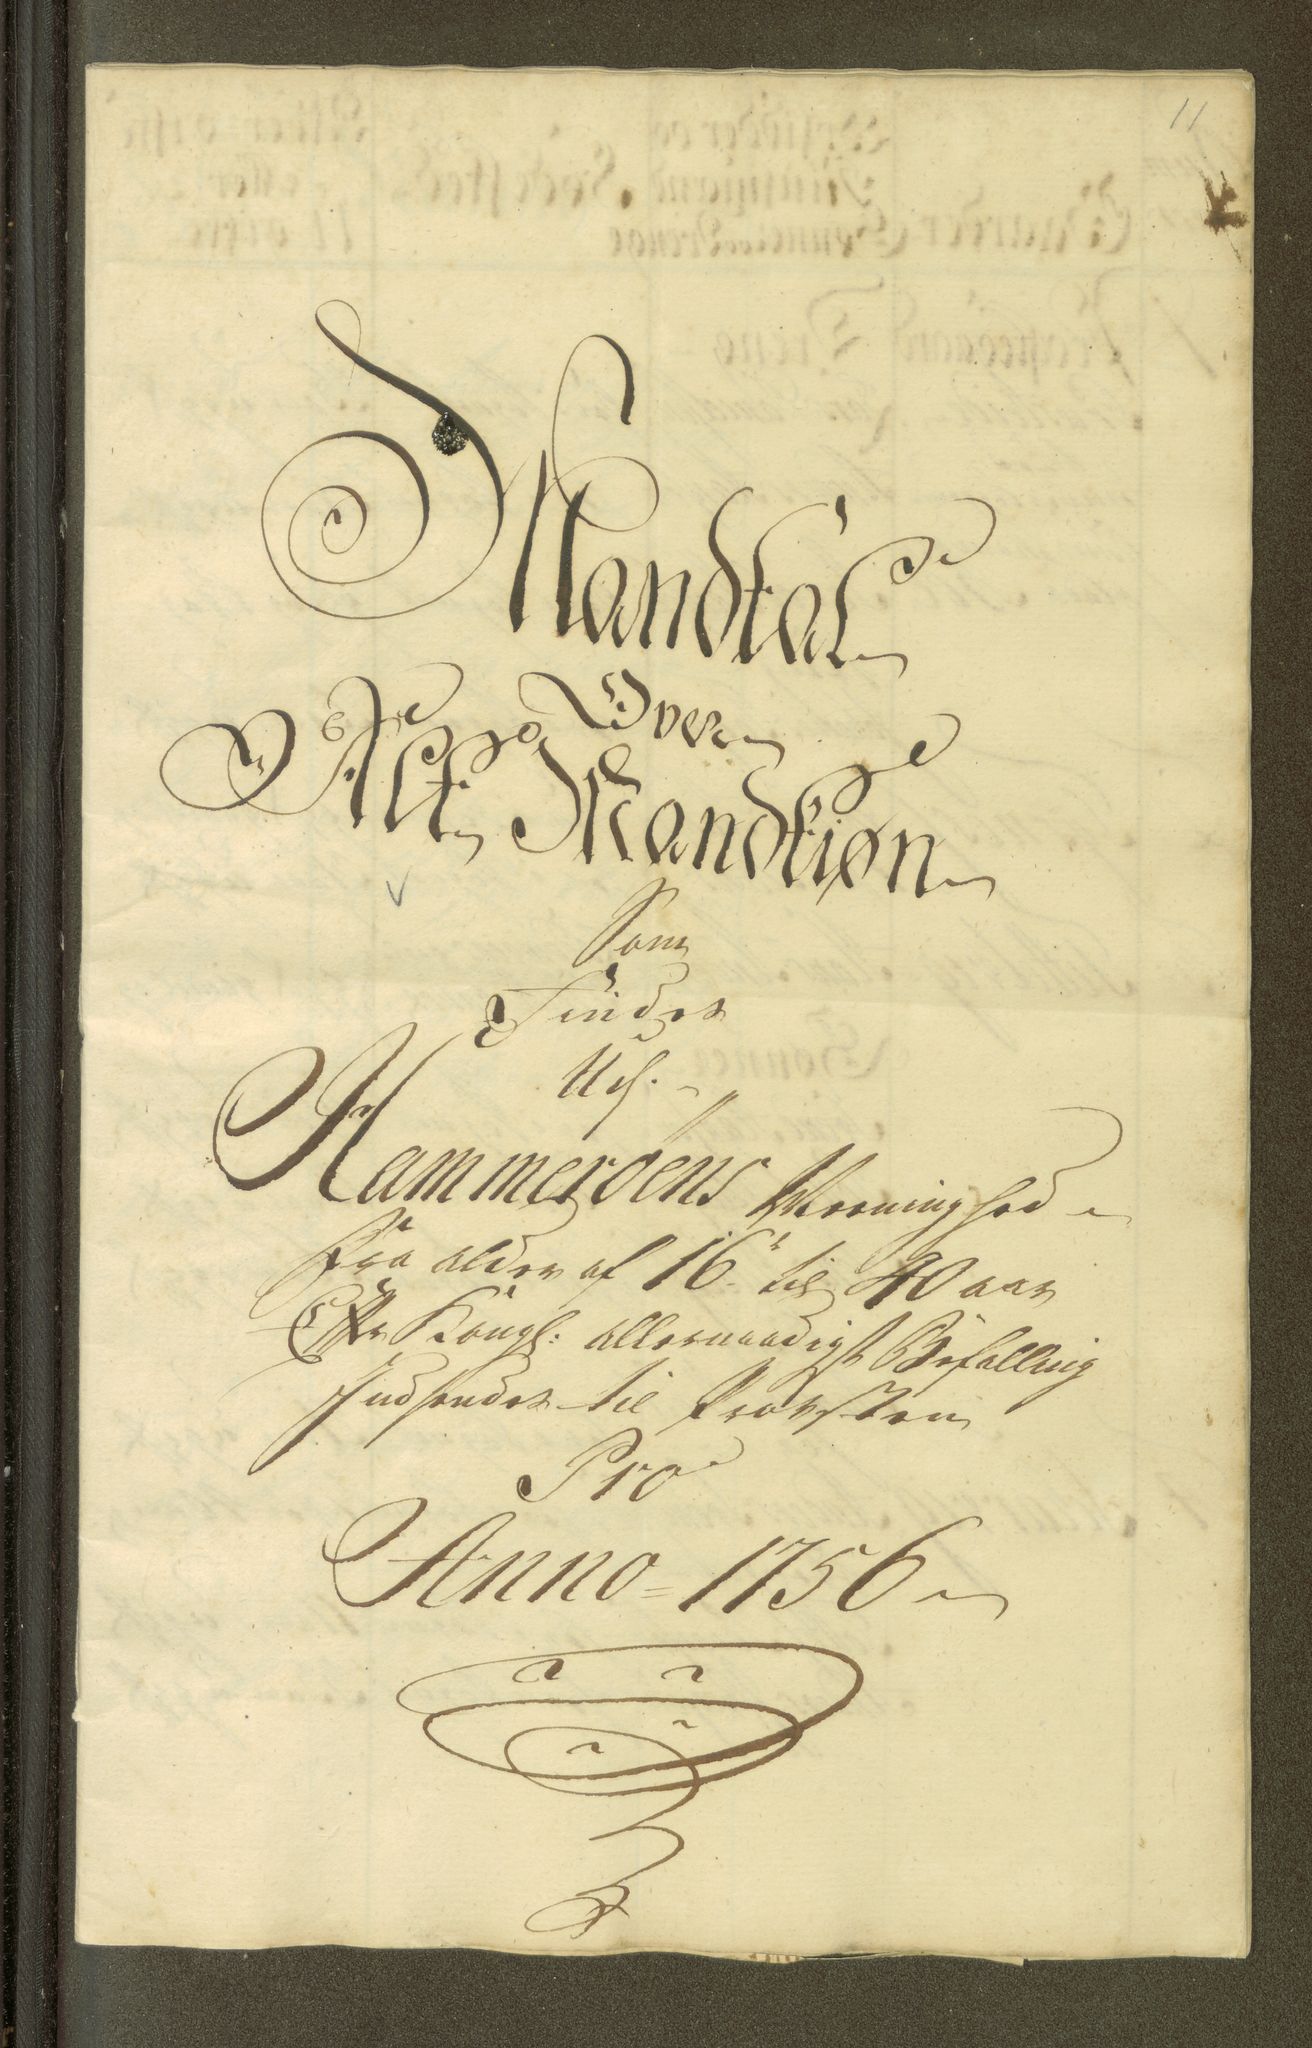 11
Mandtal
Over
Alt Mandkiøn
Som
Findes
Udj
Hammerøens Meenighed
Fra alder af 16 til 40 aar
Efter Kongl: allernaadigst Befalling
Indsendes til Provsten
Pro
Anno = 1756